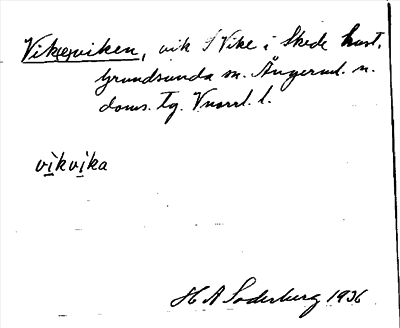 Vik(e)viken, vik S Vike i Skede hust.
Grundsunda sn. Ångerml. n.
doms. tg. Vnorrl. l.
vikvika
H A Söderberg 1936